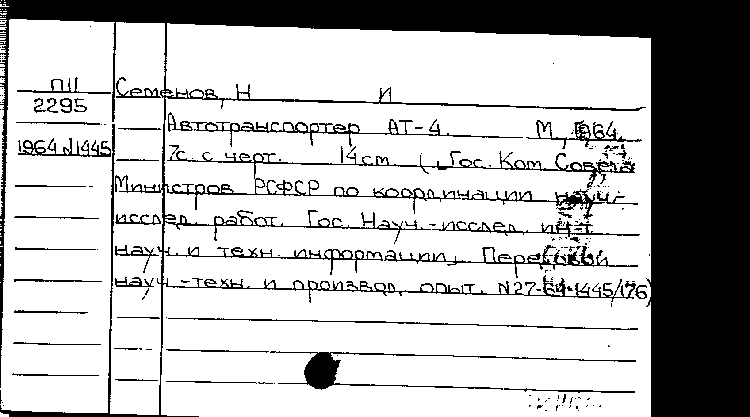 П11
2295
1964 N1445
Семенов, Н И
Автотранспортер АТ-4. М, 1964.
7с. с черт. 14 см. (Гос. Ком. Совета
Министров РСФСР по координации науч.-
исслед. работ. Гос. Науч.-исслед. ин-т
науч. и техн. информации. Передовой
науч.-техн. и производ. опыт. N27-64-1445/176)